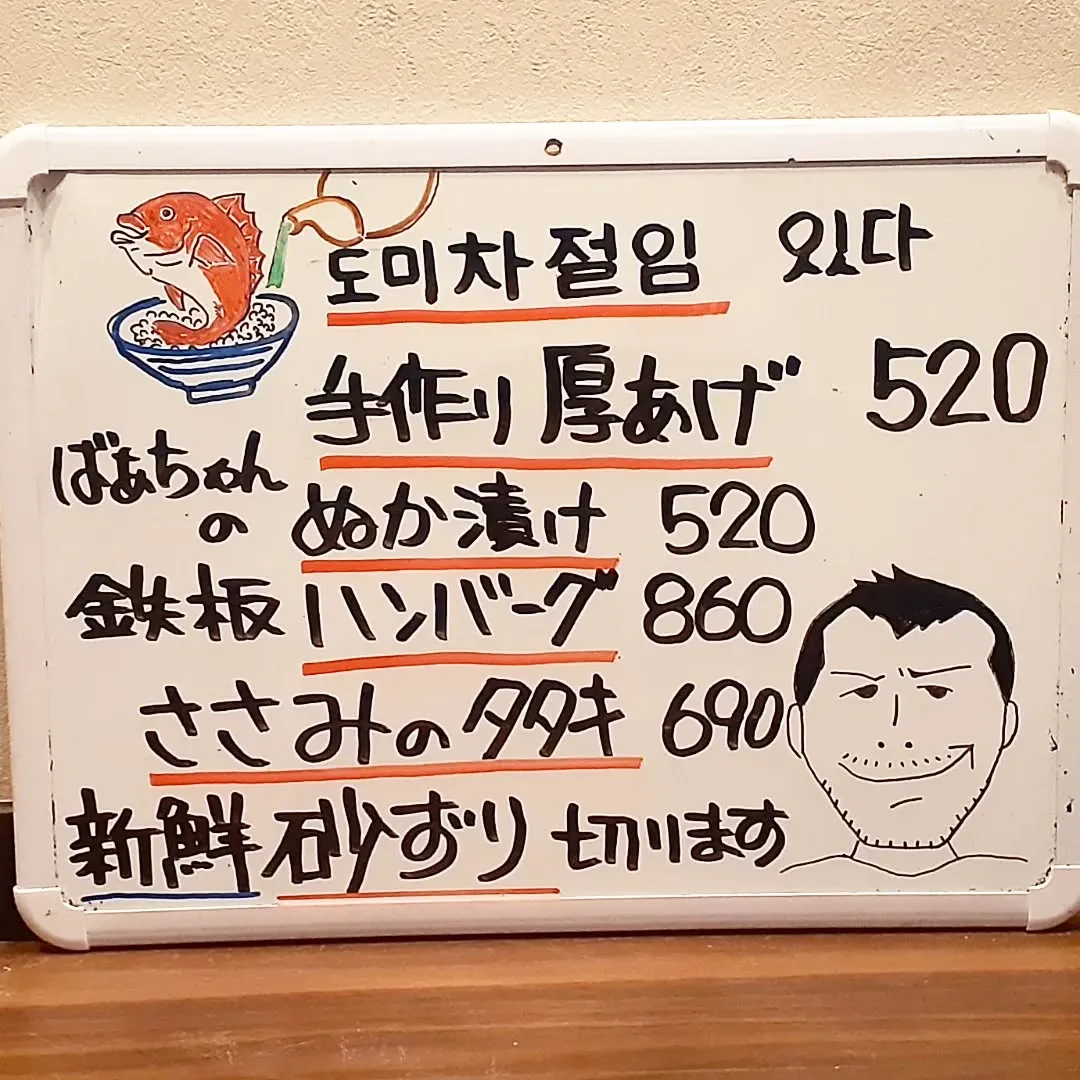 도미차절임 있다
手作り厚あげ 520
ばぁちゃん
の ぬか漬け 520
鉄板 ハンバーグ 860
ささみのタタキ 690
新鮮 砂ずり 切ります